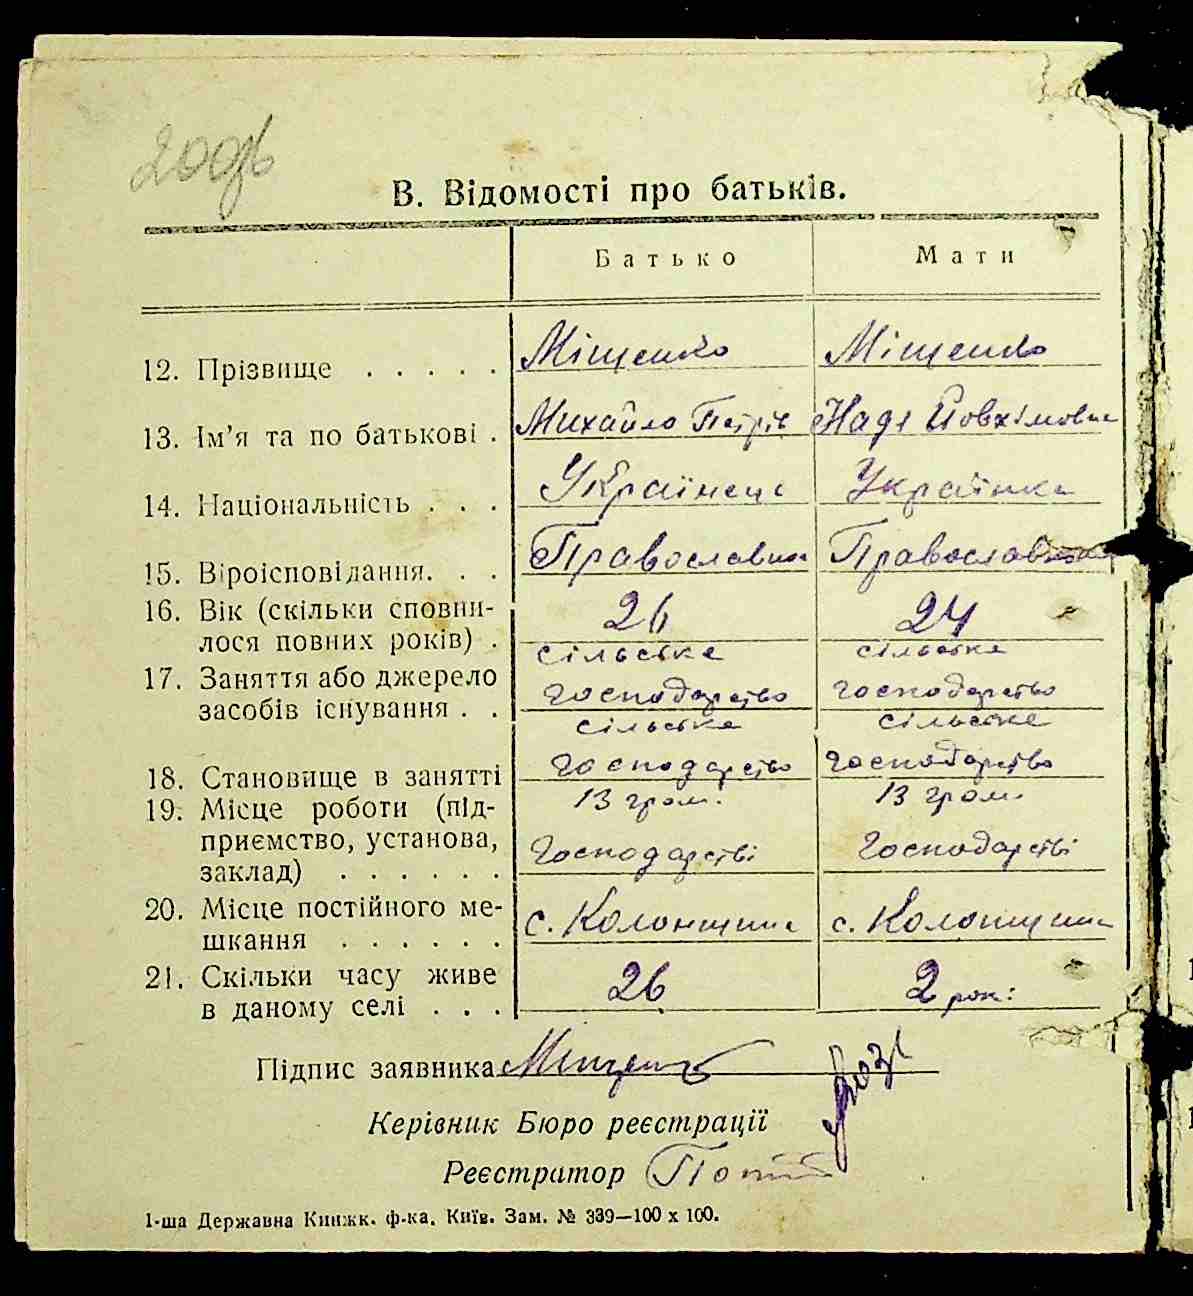 200об
В. Відомості про батьків.
Батько Мати
12. Прізвище . . . . . Міщенко Міщенко
13. Ім'я та по батькові . Михайло Петрів Надя Йовхімовна
14. Національність . . . Українець Українка
15. Віроісповідання. . . Православна Православна
16. Вік (скільки сповни-
лося повних років) . 26 24
17. Заняття або джерело сільське сільське
засобів існування . . господарство господарство
сільське сільське
18. Становище в занятті господарство господарство
19. Місце роботи (під- В гром. В гром.
приємство, установа,
заклад) . . . . . . Господарстві Господарстві
20. Місце постійного ме-
шкання . . . . . . с. Колонщина с. Колонщина
21. Скільки часу живе
в даному селі . . . 26 2 роки
Підпис заявника Міщенко
Керівник Бюро реєстрації
Реєстратор
1-ша Державна Книжк. ф-ка. Київ. Зам. № 339—100 х 100.